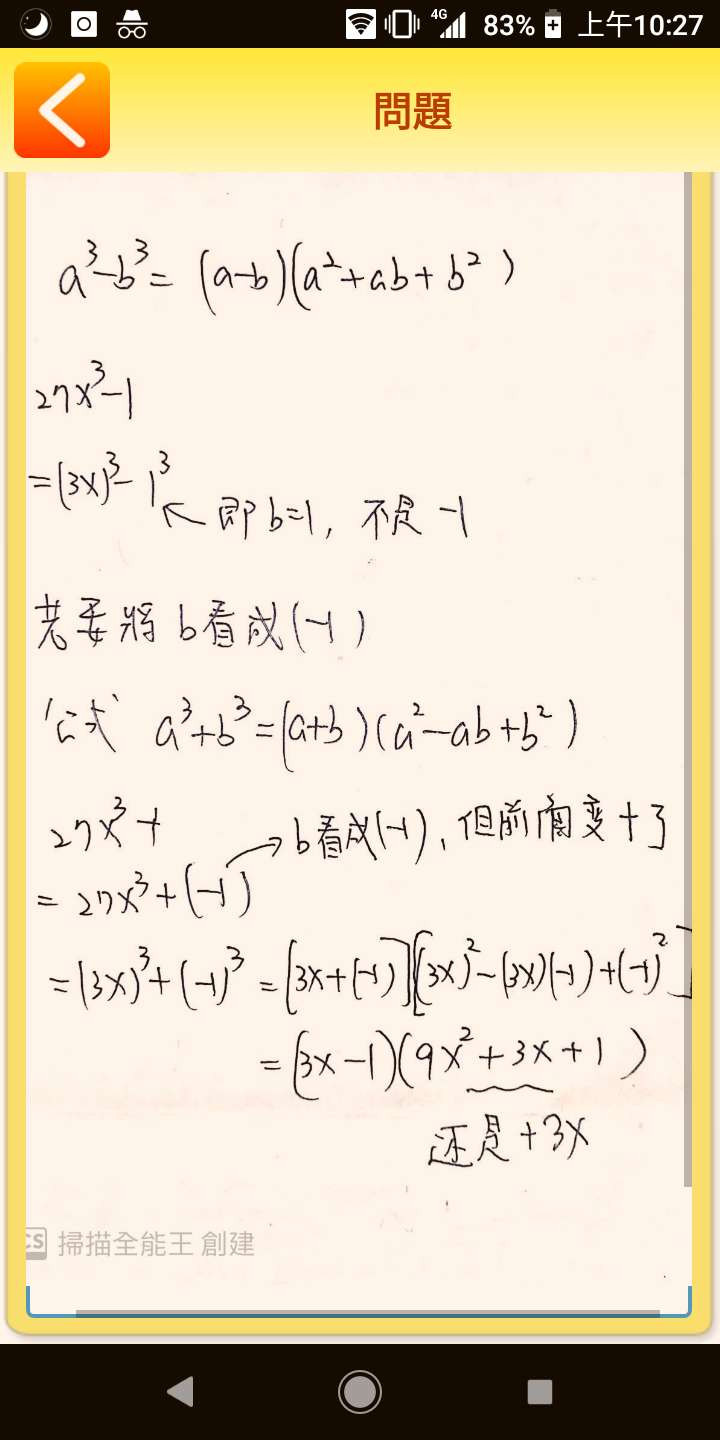 4G 83% 上午10:27
問題
a³-b³= (a-b)(a²+ab+b²)
27x³-1
=(3x)³-1³
即b=1, 不是 -1
若要將 b看成(-1)
'公式' a³+b³=(a+b)(a²-ab+b²)
27x³+
b看成(-1), 但前面变+了
= 27x³+(-1)
=(3x)³+(-1)³ =[3x+(-1)][(3x)²-(3x)(-1)+(-1)²]
=(3x-1)(9x²+3x+1)
还是+3x
CS 掃描全能王 創建